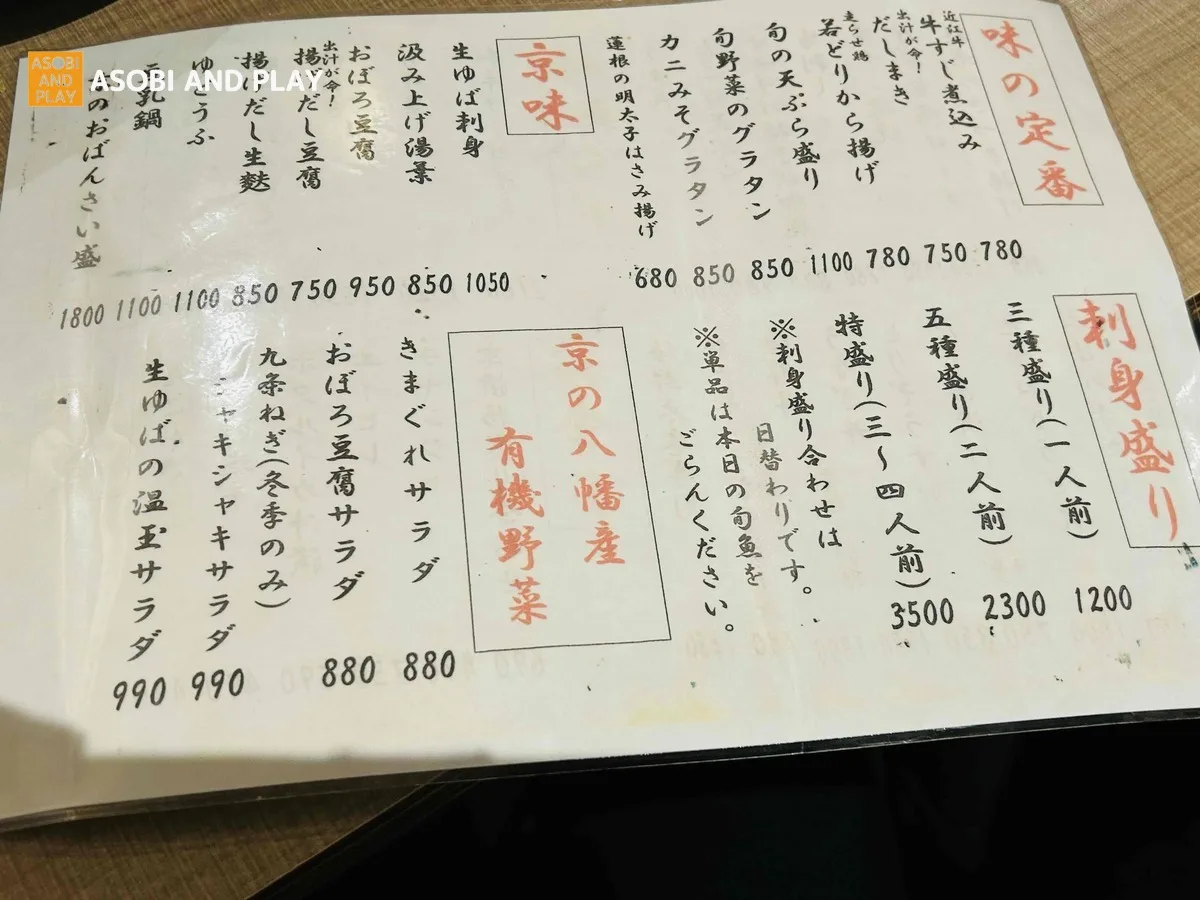 ASOBI AND PLAY
ASOBI AND PLAY
味の定番
近江牛
牛すじ煮込み 780
出汁が命!
だしまき 750
若どりから揚げ 780
旬の天ぷら盛り 1100
旬野菜のグラタン 850
カニみそグラタン 850
蓮根の明太子はさみ揚げ 680
京味
生ゆば刺身 1050
汲み上げ湯葉 850
おぼろ豆腐 950
出汁が命!
揚げだし豆腐 750
揚げだし生麩 850
ゆどうふ 1100
乳鍋 1100
のおばんさい盛 1800
刺身盛り
三種盛り(一人前) 1200
五種盛り(二人前) 2300
特盛り(三〜四人前) 3500
※刺身盛り合わせは
日替わりです。
※単品は本日の旬魚を
ごらんください。
京の八幡産
有機野菜
きまぐれサラダ 880
おぼろ豆腐サラダ 880
九条ねぎ(冬季のみ)
シャキシャキサラダ 990
生ゆばの温玉サラダ 990